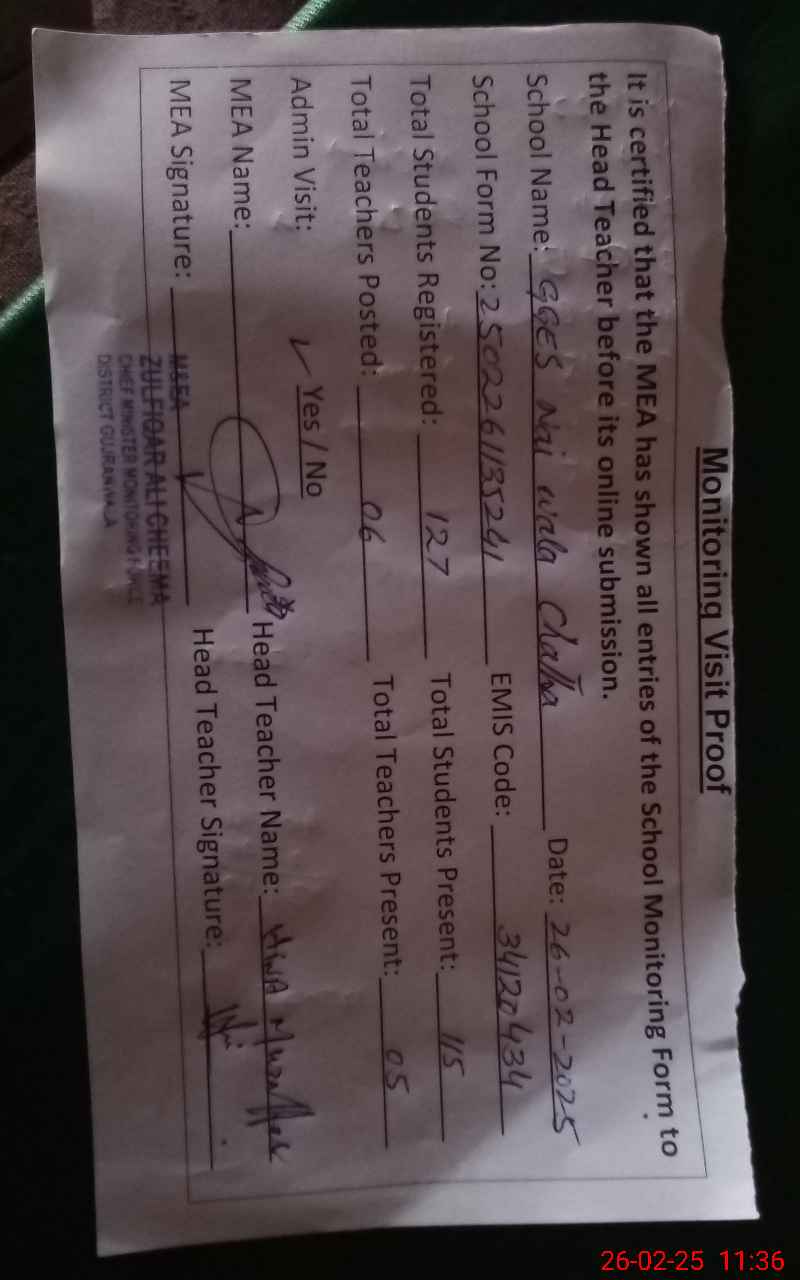 Monitoring Visit Proof
It is certified that the MEA has shown all entries of the School Monitoring Form to
the Head Teacher before its online submission.
School Name: GGES Nai wala Chatha Date: 26-02-2025
School Form No: 2502261135241 EMIS Code: 34120434
Total Students Registered: 127 Total Students Present: 115
Total Teachers Posted: 06 Total Teachers Present: 05
Admin Visit: ✓ Yes / No
MEA Name: Head Teacher Name: Hina
MEA Signature: Head Teacher Signature:
M&EA
ZULFIQAR ALI CHEEMA
CHIEF MINISTER MONITORING FORCE
DISTRICT GUJRANWALA
26-02-25 11:36